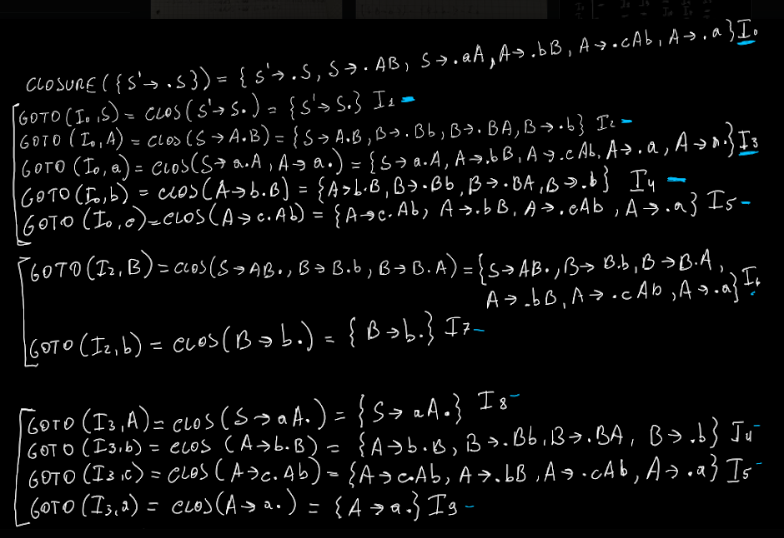 CLOSURE({S'→.S}) = {S'→.S, S→.AB, S→.aA, A→.bB, A→.cAb, A→.a} I0
GOTO(I0,S) = CLOS(S'→S.) = {S'→S.} I1
GOTO(I0,A) = CLOS(S→A.B) = {S→A.B, B→.Bb, B→.BA, B→.b} I2
GOTO(I0,a) = CLOS(S→a.A, A→a.) = {S→a.A, A→.bB, A→.cAb, A→.a, A→a.} I3
GOTO(I0,b) = CLOS(A→b.B) = {A→b.B, B→.Bb, B→.BA, B→.b} I4
GOTO(I0,c) = CLOS(A→c.Ab) = {A→c.Ab, A→.bB, A→.cAb, A→.a} I5
GOTO(I2,B) = CLOS(S→AB., B→B.b, B→B.A) = {S→AB., B→B.b, B→B.A,
A→.bB, A→.cAb, A→.a} I6
GOTO(I2,b) = CLOS(B→b.) = {B→b.} I7
GOTO(I3,A) = CLOS(S→aA.) = {S→aA.} I8
GOTO(I3,b) = CLOS(A→b.B) = {A→b.B, B→.Bb, B→.BA, B→.b} I4
GOTO(I3,c) = CLOS(A→c.Ab) = {A→c.Ab, A→.bB, A→.cAb, A→.a} I5
GOTO(I3,a) = CLOS(A→a.) = {A→a.} I9